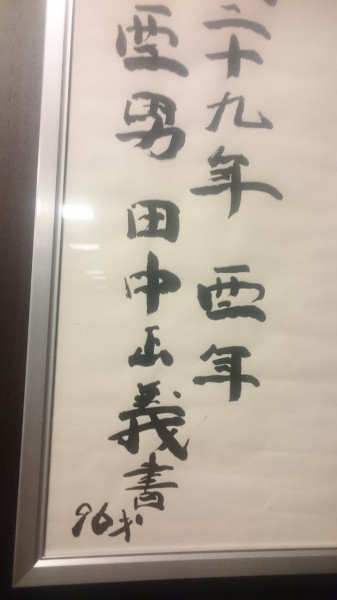 二十九年 酉年
酉男 田中正義書
96才